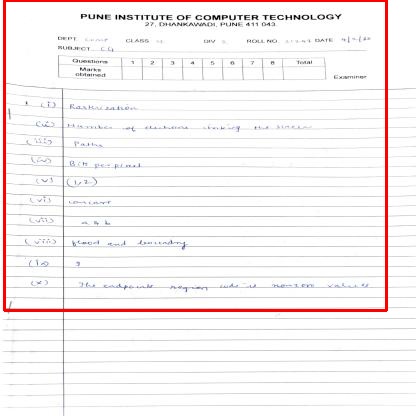 PUNE INSTITUTE OF COMPUTER TECHNOLOGY
27, DHANKAWADI, PUNE 411 043.
DEPT. Comp CLASS DIV ROLL NO. DATE
SUBJECT CG
Questions 1 2 3 4 5 6 7 8 Total
Marks obtained
Examiner
1 (i) Rasterization
(ii) Number of electrons striking the screen
(iii) Paths
(iv) Bits per pixel
(v) (1,2)
(vi) concave
(vii) a & b
(viii) flood and boundry
(ix) 9
(x) The endpoints region code is nonzero values